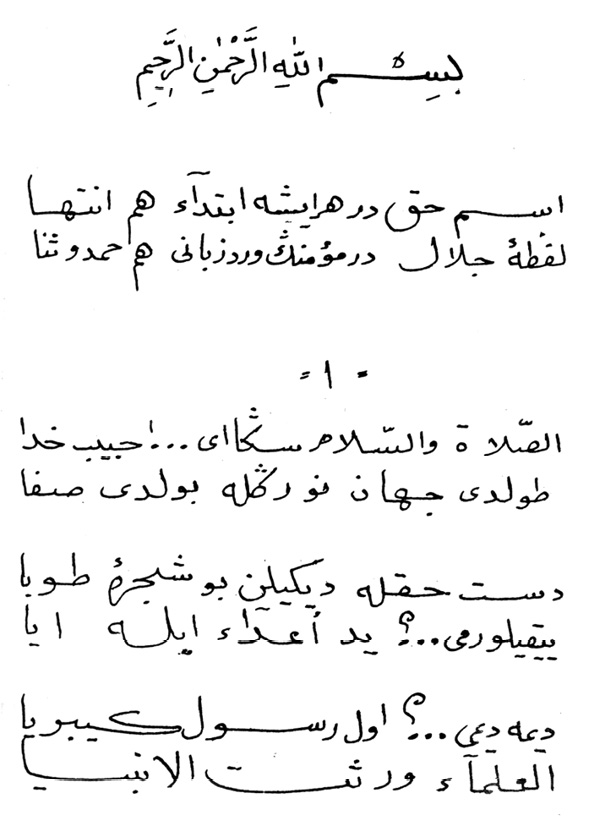 بِسْمِ اللّٰهِ الرَّحْمٰنِ الرَّحِيمِ
اسم حق در هرایشه ابتدآء هم انتها
لفظهٔ جلال در مؤمنڭ ورد زبانی هم حمد و ثنا
= ١ =
الصّلاة والسّلام سڭا ای...! حبیب خدا
طولدی جهان نورڭله بولدی صفا
دست حقله دیکیلن بو شجرهٔ طوبا
ییقیلورمی...؟ ید أعدآء ایله ایا
دیمه دیمی...؟ اول رسول کیبریا
العلمآء ورثت الانبیا